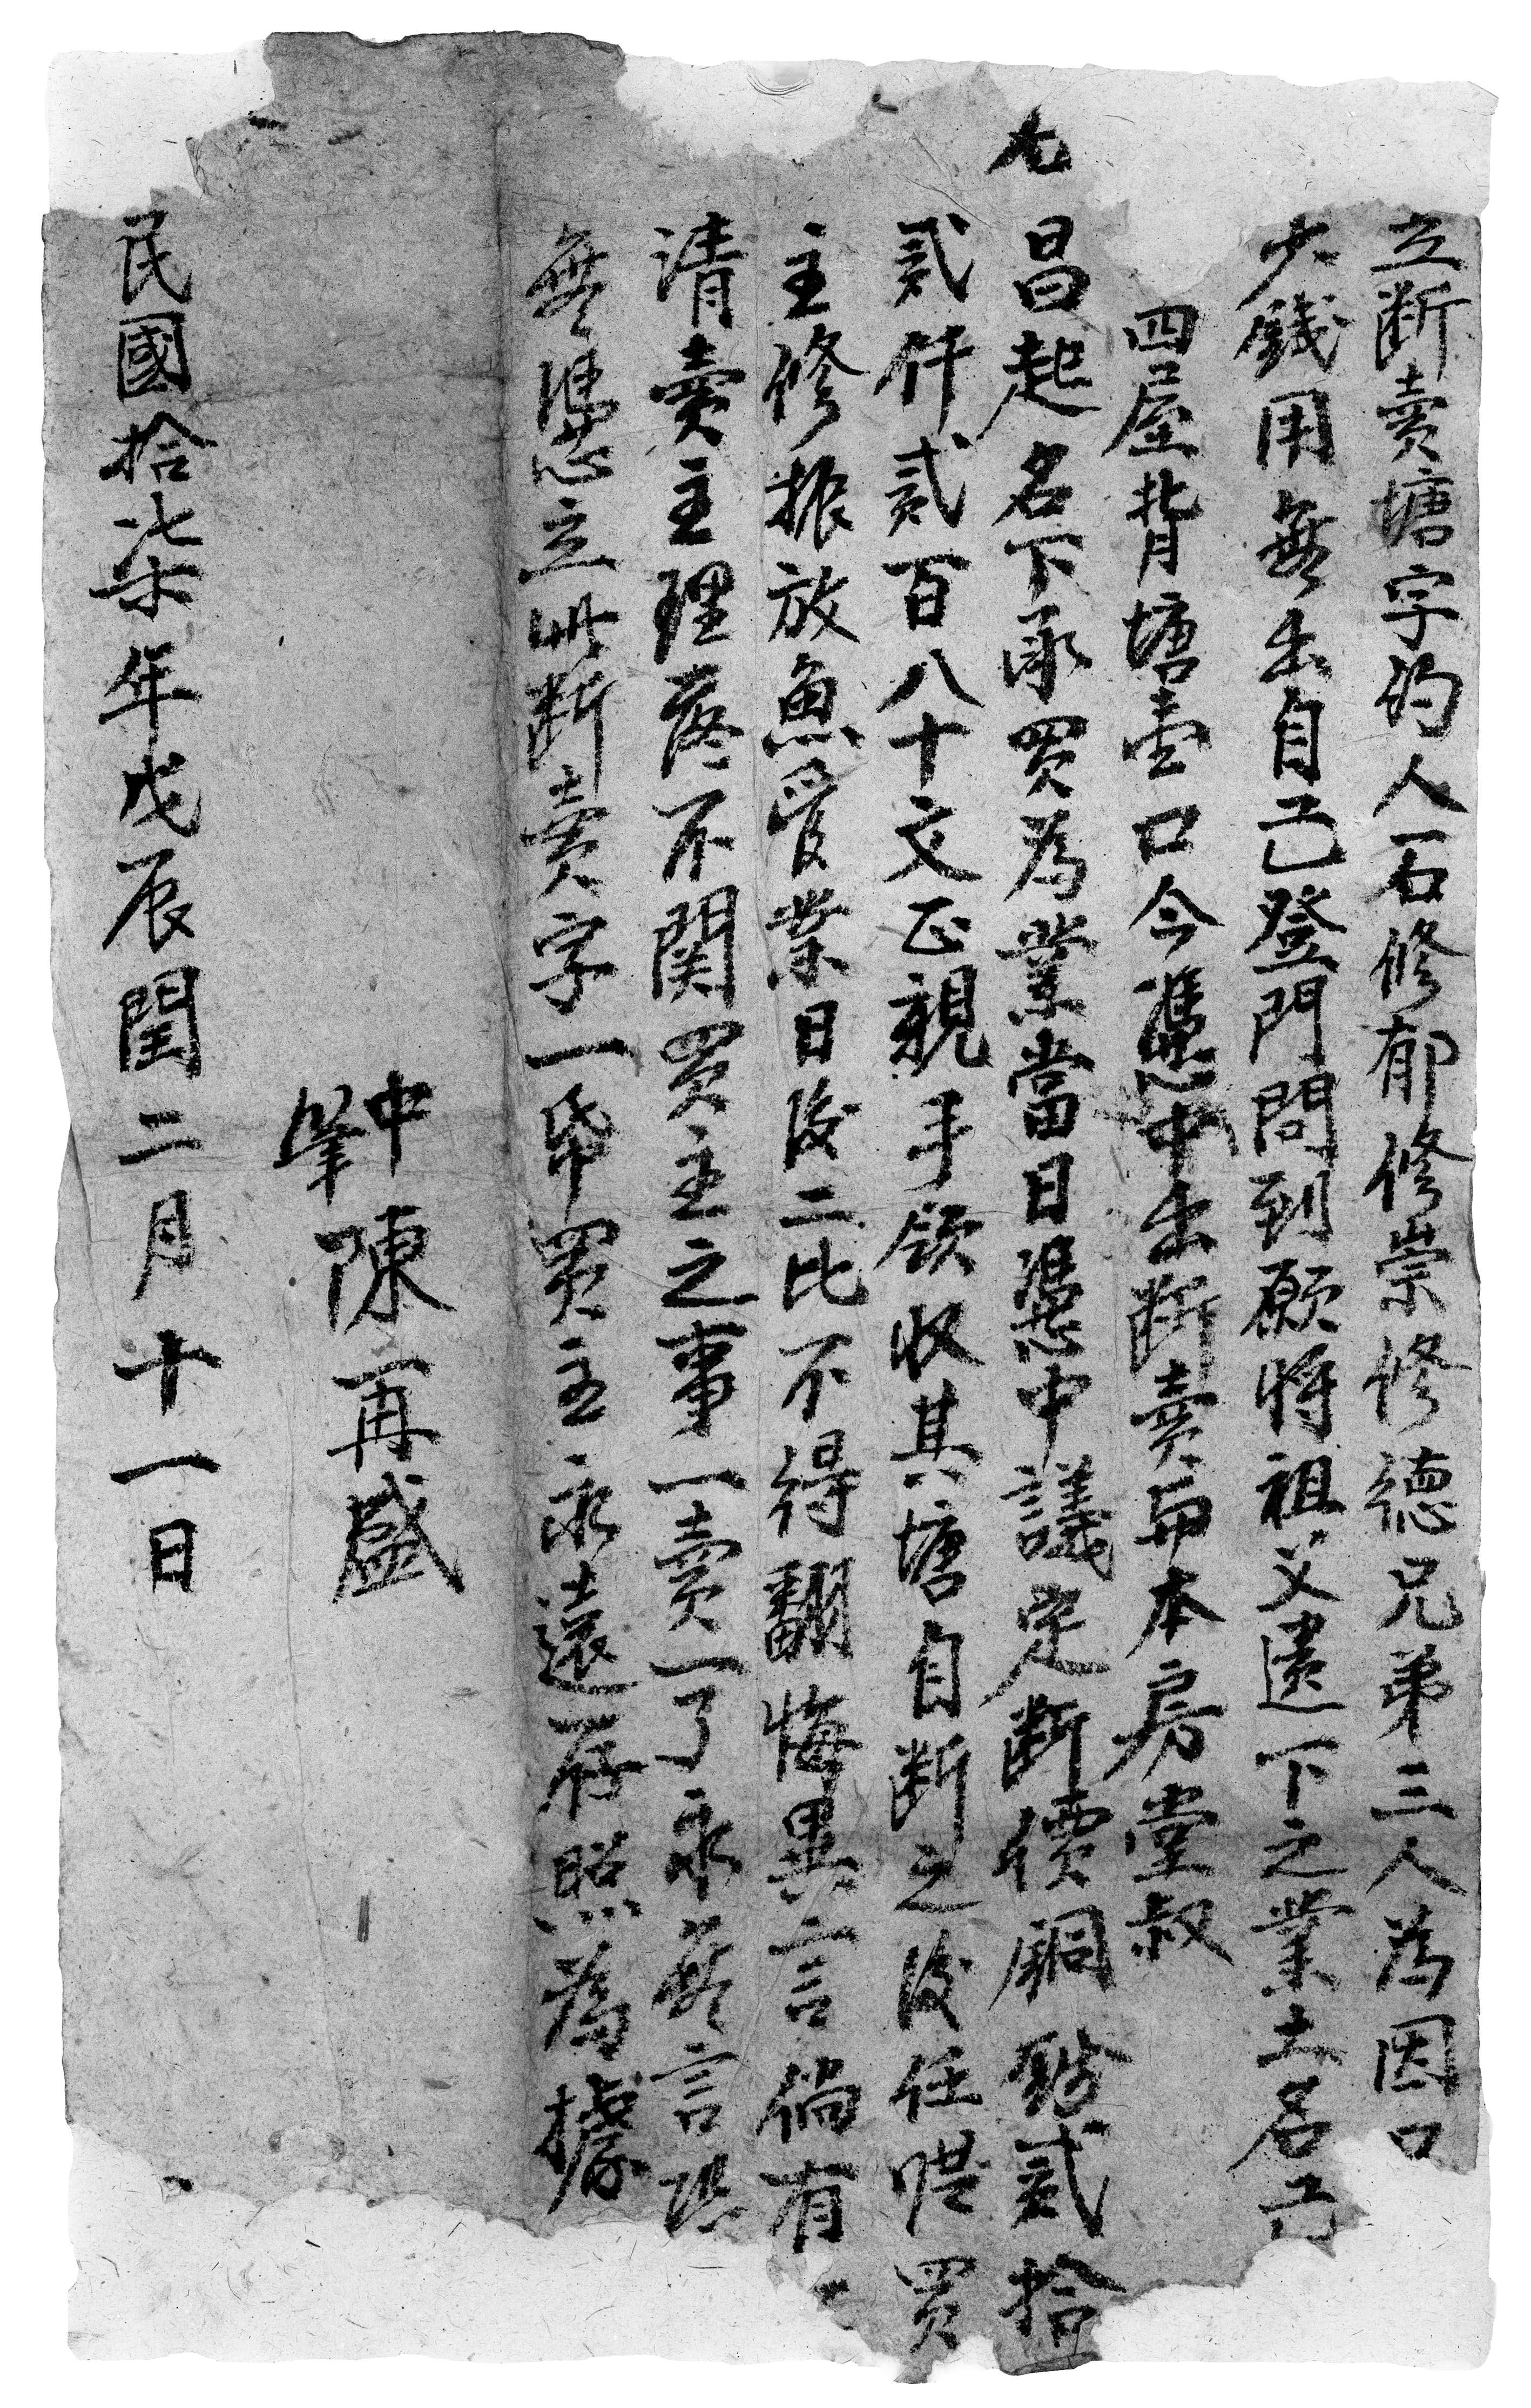 立断賣塘字約人石修郁修崇修德兄弟三人為因口
少錢用無出自己登門問到願将祖父遺下之業土名
四屋背塘壹口今憑中出断賣與本房堂叔
昌起名下承買為業當日憑中議定断價銅錢貳拾
貳仟貳百八十文正親手領收其塘自断之後任憑買
主修振放魚管業日後二比不得翻悔異言倘有
清賣主理落不関買主之事一賣一了永無言恐
無憑立此断賣字一紙買主永遠存照為據
中
筆
陳再盛
民國拾柒年戊辰閏二月十一日